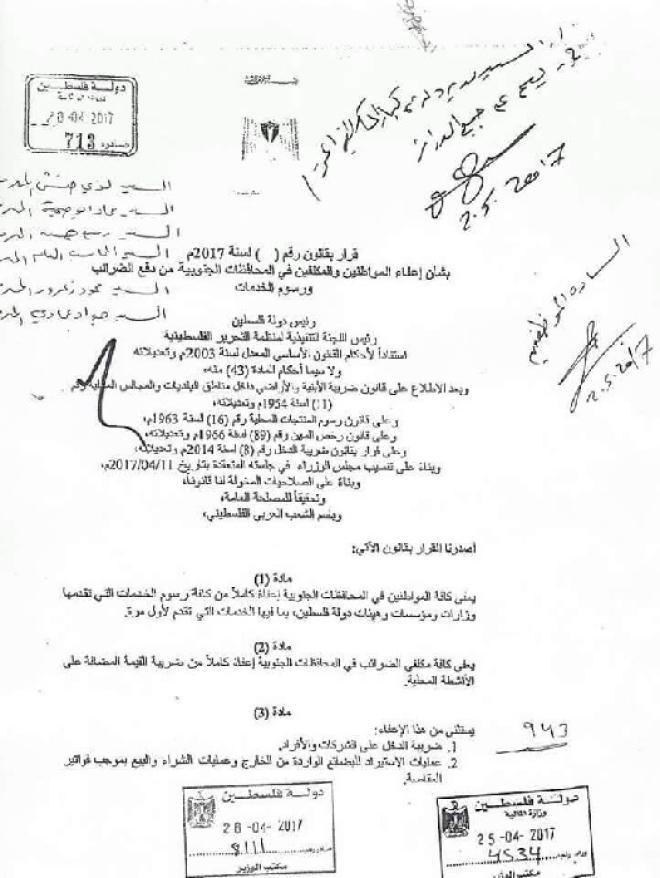 دولة فلسطين
28-04-2017
صادرة 713
2.5.2017
السادة الموظفين
2.5.2017
قرار بقانون رقم ( ) لسنة 2017م
بشأن إعفاء المواطنين والمكلفين في المحافظات الجنوبية من دفع الضرائب
ورسوم الخدمات
رئيس دولة فلسطين
رئيس اللجنة التنفيذية لمنظمة التحرير الفلسطينية
استناداً لأحكام القانون الأساسي المعدل لسنة 2003م وتعديلاته
ولا سيما أحكام المادة (43) منه،
وبعد الاطلاع على قانون ضريبة الأبنية والأراضي داخل مناطق البلديات والمجالس المحلية رقم
(11) لسنة 1954م وتعديلاته،
وعلى قانون رسوم المنتجات المحلية رقم (16) لسنة 1963م،
وعلى قانون رخص المهن رقم (89) لسنة 1966م وتعديلاته،
وعلى قرار بقانون ضريبة الدخل رقم (8) لسنة 2014م وتعديلاته،
وبناءً على تنسيب مجلس الوزراء في جلسته المنعقدة بتاريخ 2017/04/11م،
وبناءً على الصلاحيات المخولة لنا قانوناً،
وتحقيقاً للمصلحة العامة،
وباسم الشعب العربي الفلسطيني،
أصدرنا القرار بقانون الآتي:
مادة (1)
يعفى كافة المواطنين في المحافظات الجنوبية إعفاءً كاملاً من كافة رسوم الخدمات التي تقدمها
وزارات ومؤسسات وهيئات دولة فلسطين، بما فيها الخدمات التي تقدم لأول مرة.
مادة (2)
يعفى كافة مكلفي الضرائب في المحافظات الجنوبية إعفاءً كاملاً من ضريبة القيمة المضافة على
الأنشطة المحلية.
مادة (3)
يستثنى من هذا الإعفاء:
1. ضريبة الدخل على الشركات والأفراد.
2. عمليات الاستيراد للبضائع الواردة من الخارج وعمليات الشراء والبيع بموجب فواتير
المقاصة.
943
دولة فلسطين
28-04-2017
8111
مكتب الوزير
دولة فلسطين
وزارة المالية
25-04-2017
4534
مكتب الوزير